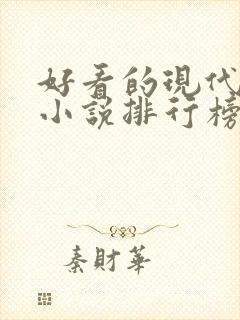 好看的現代
小說排行榜
秦財華